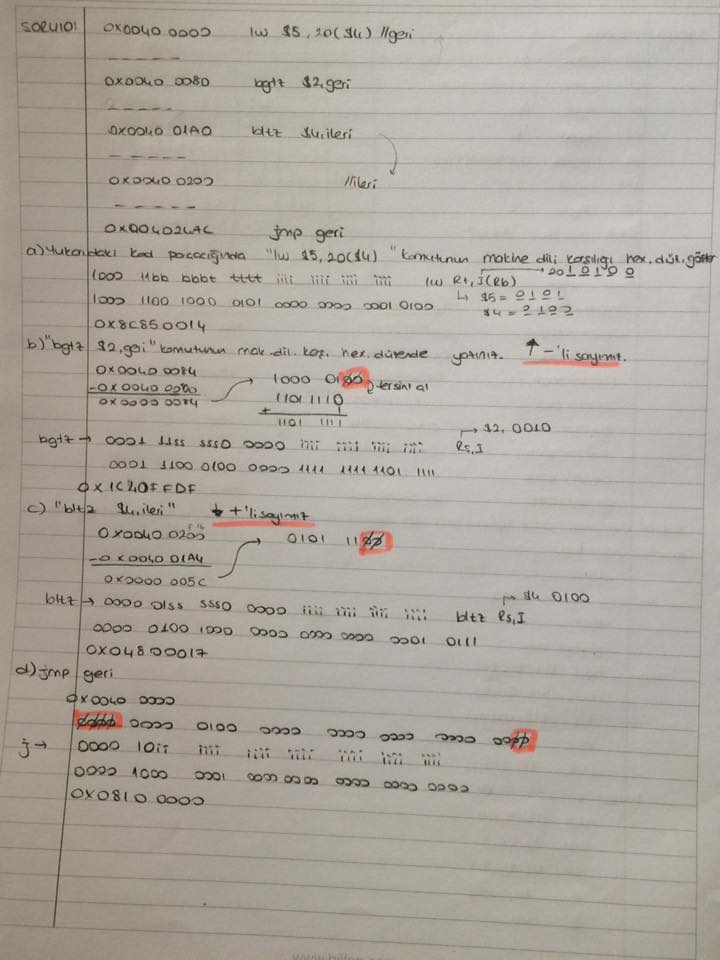 SORU10: 0x0040 0000 lw $5, 20($4) //geri
-----
0x0040 0080 bgtz $2, geri
-----
0x0040 01A0 bltz $4, ileri
-----
0x0040 0200 //ileri
-----
0x004024AC jmp geri
a) Yukarıdaki kod parçacığında "lw $5, 20($4)" komutunun makine dili karşılığı hex. düz. göster
1000 11bb bbbt tttt iiii iiii iiii iiii lw Rt, I(Rb) → 20 1 0 1 0 0
1000 1100 1000 0101 0000 0000 0001 0100 ↳ $5 = 0101
$4 = 0100
0x8C850014
b) "bgtz $2, geri" komutunun mak. dil. karş. hex. düzende yazınız. ↑ -'li sayımız.
0x0040 0084
-0x0040 0000
0x0000 0084
1000 0100 tersini al
1101 1110
+ 1
1101 1111
→ $2, 0010
bgtz → 0001 11ss sss0 0000 iiii iiii iiii iiii Rs, I
0001 1100 0100 0000 1111 1111 1101 1111
0x1C40FFDF
c) "bltz $4, ileri" ↓ +'li sayımız
F 16
0x0040 0200
-0x0040 01A4
0x0000 005C
0101 1100
→ $4 0100
bltz → 0000 01ss sss0 0000 iiii iiii iiii iiii bltz Rs, I
0000 0100 1000 0000 0000 0000 0001 0111
0x04800017
d) jmp geri
0x0040 0000
0000 0000 0100 0000 0000 0000 0000 0000
j → 0000 10ii iiii iiii iiii iiii iiii iiii
0000 1000 0001 0000 0000 0000 0000 0000
0x0810 0000